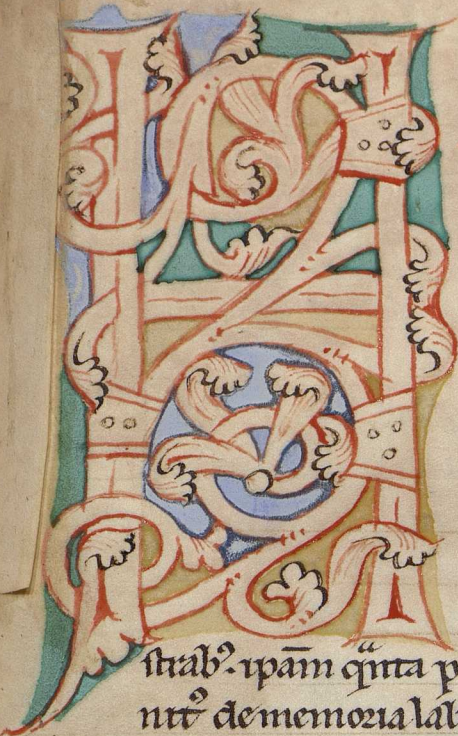 H
strabꝰ. ipam̄ q̈nta p
nitꝰ de memoria lab